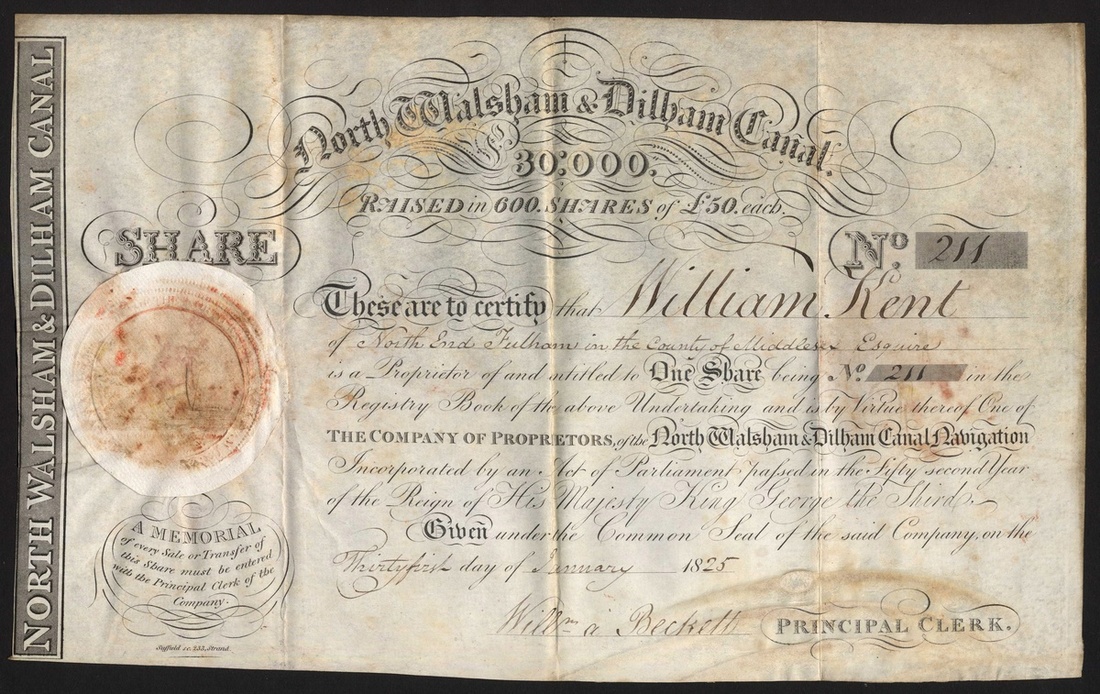 NORTH WALSHAM & DILHAM CANAL
North Walsham & Dilham Canal.
£
30.000.
RAISED in 600. SHARES of £50. each.
SHARE
No. 211
These are to certify that William Kent
of North End Fulham in the County of Middlesex Esquire
is a Proprietor of and intitled to One Share being No. 211 in the
Registry Book of the above Undertaking and is by Virtue thereof One of
THE COMPANY OF PROPRIETORS, of the North Walsham & Dilham Canal Navigation
Incorporated by an Act of Parliament passed in the Fifty second Year
of the Reign of His Majesty King George the Third.
Given under the Common Seal of the said Company, on the
Thirtyfirst day of January 1825
Willm a Beckett PRINCIPAL CLERK.
A MEMORIAL
of every Sale or Transfer of
this Share must be entered
with the Principal Clerk of the
Company.
Suffield sc. 233, Strand.